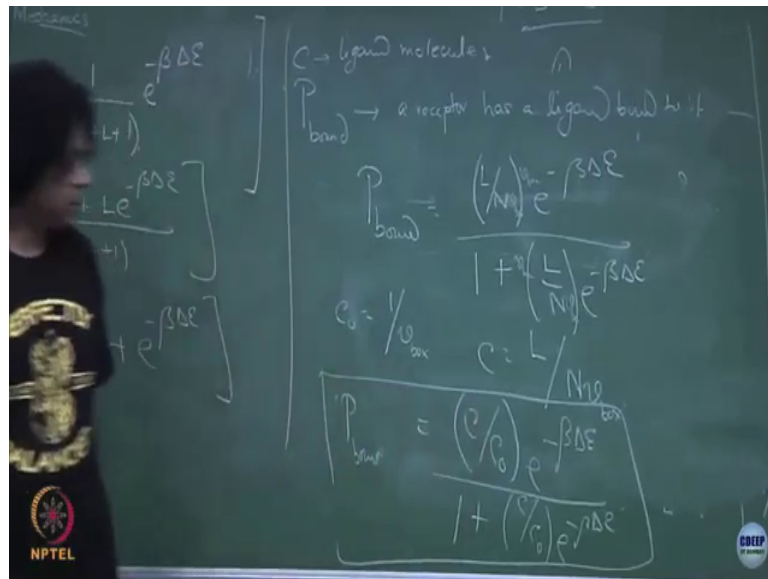 Mechanics
1 e^{-βΔε}
-L+1)
+ Le^{-βΔε}
+1)
+ e^{-βΔε}
C → ligand molecules
P_bound → a receptor has a ligand bound to it —
P_bound = (L/Nv) v_box e^{-βΔε}
1 + v(L/Nv) e^{-βΔε}
c₀ = 1/v_box
c = L/Nv_box
P_bound = (c/c₀) e^{-βΔε}
1 + (c/c₀) e^{-βΔε}
NPTEL
CDEEP
IIT BOMBAY